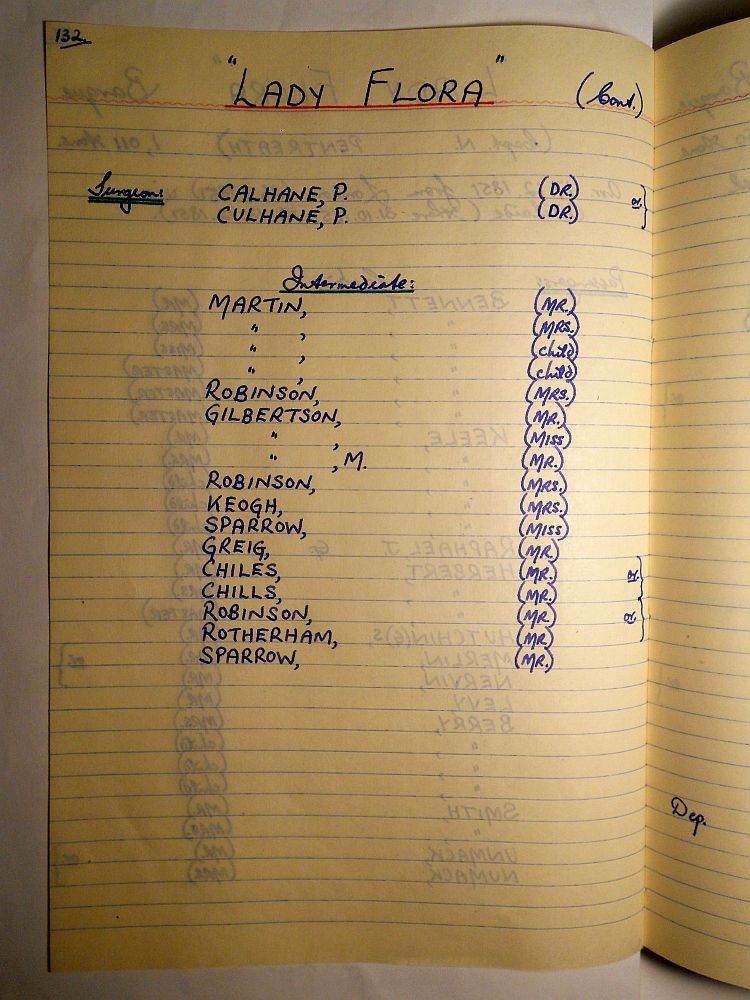 132.
"LADY FLORA" (Cont.)
Surgeon: CALHANE, P. (DR.) or
CULHANE, P. (DR.)
Intermediate:
MARTIN, (MR.)
" , (MRS.)
" , (child)
" , (child)
ROBINSON, (MRS.)
GILBERTSON, (MR.)
" , (MISS)
" , M. (MR.)
ROBINSON, (MRS.)
KEOGH, (MRS.)
SPARROW, (MISS)
GREIG, (MR.)
CHILES, (MR.) or
CHILLS, (MR.)
ROBINSON, (MR.) or
ROTHERHAM, (MR.)
SPARROW, (MR.)
Dep.